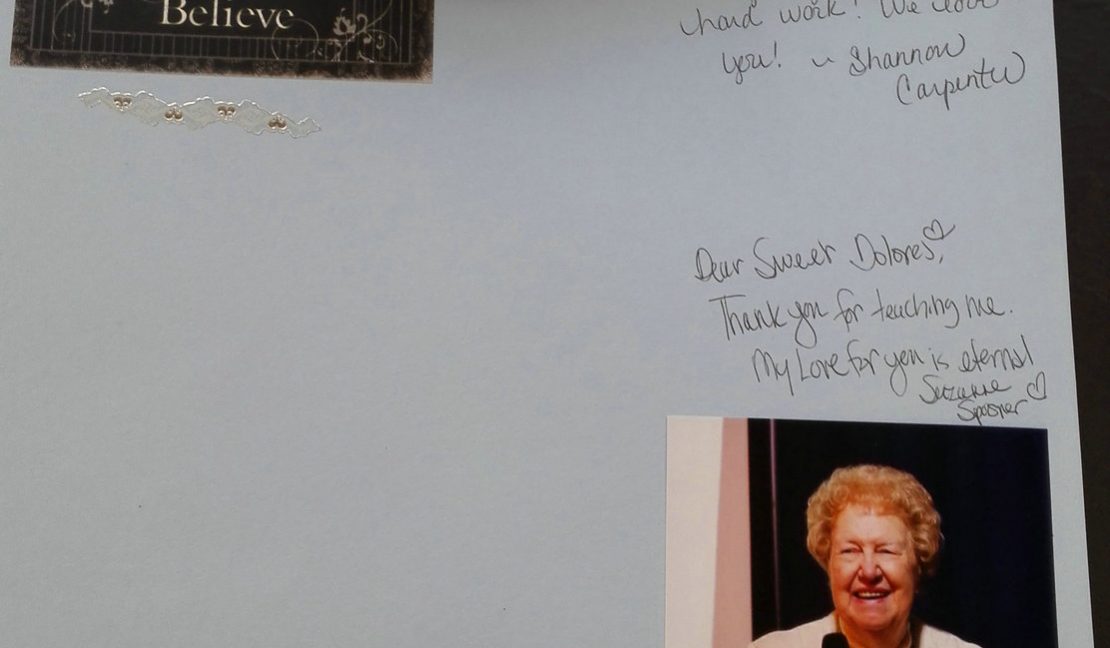 Believe
hard work! We love
you! ~ Shannon
Carpenter
Dear Sweet Dolores,
Thank you for teaching me.
My Love for you is eternal
Suzanne
Spooner